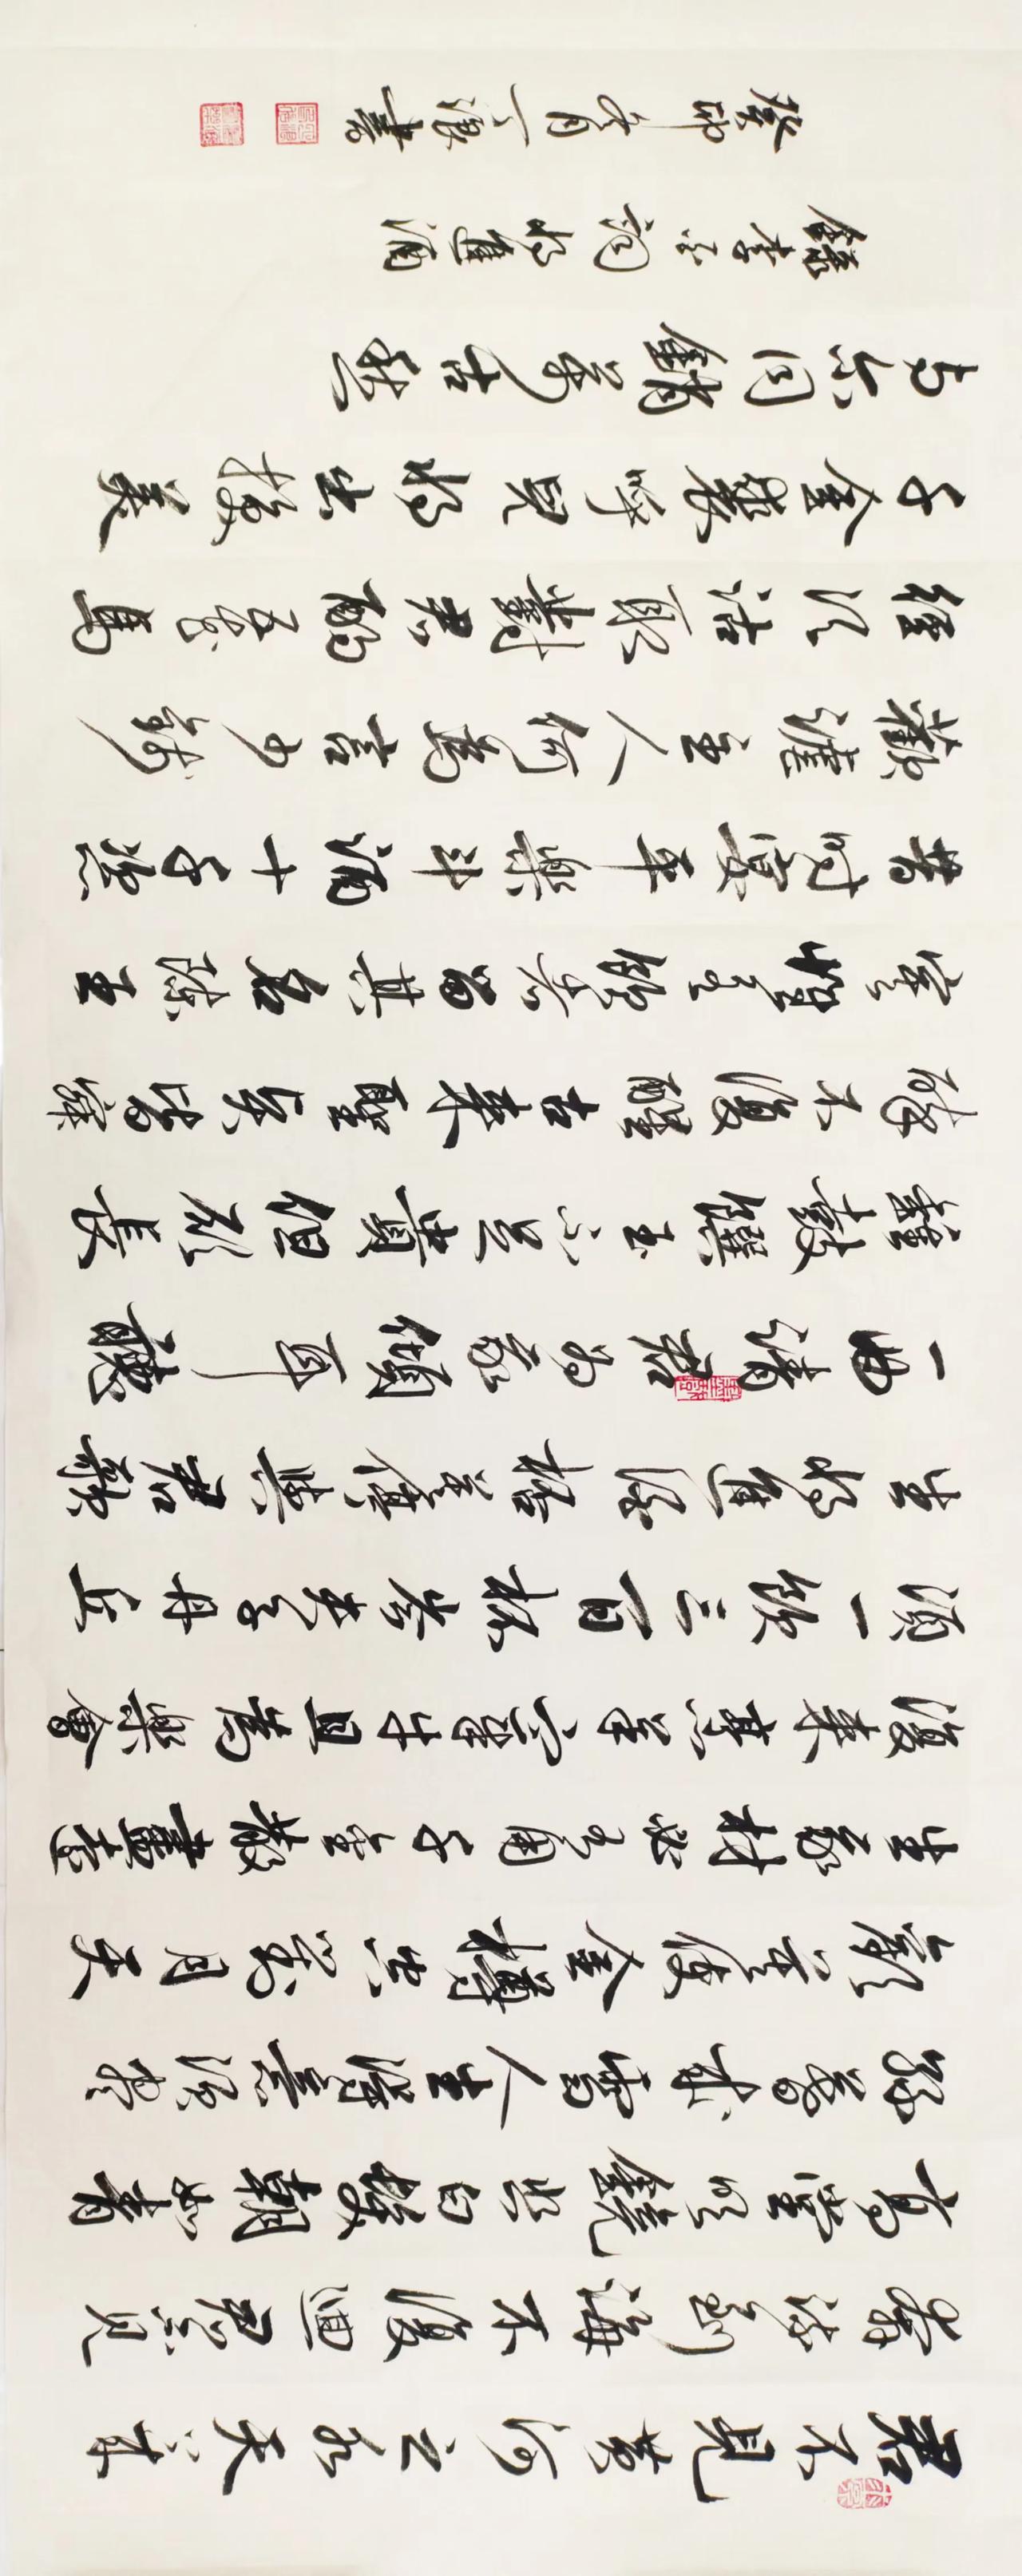 君不見黄河之水天上来
奔流到海不復回君不見
高堂明鏡悲白髮朝如青
絲暮成雪人生得意須盡
歡莫使金樽空對月天
生我材必有用千金散盡還
復来烹羊宰牛且為樂會
須一飲三百杯岑夫子丹丘
生將進酒杯莫停與君歌
一曲請君為我傾耳聽
鐘鼓饌玉不足貴但願長
醉不復醒古来聖賢皆寂
寞惟有飲者留其名陳王
昔時宴平樂斗酒十千恣
歡謔主人何為言少錢
徑須沽取對君酌五花馬
千金裘呼兒將出換美
与尔同銷萬古愁
錄李白詞將進酒
癸卯春月一浪書